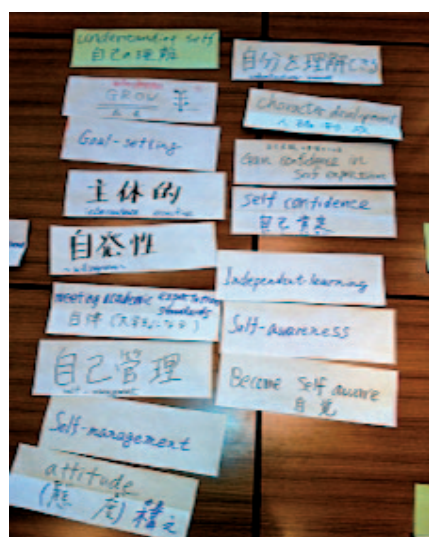 understanding self
自己の理解
GROW
Goal-setting
主体的
自発性
meeting academic expectations
standards
自律
自己管理
self-management
Self-management
attitude
(態度) 構え
自分を理解できる
character development
人格形成
Gain confidence in
Self expression
self confidence
自己肯定
Independent learning
Self-awareness
Become self aware
自覚